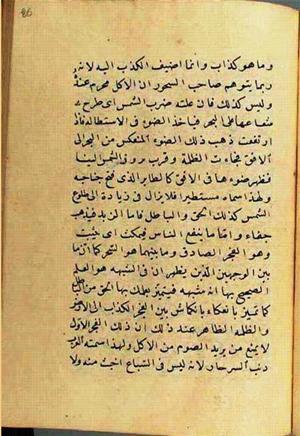 وما هو كذاب وانما اضيف الكذب اليه لانه
ربما يتوهم صاحب السحور ان الاكل محرم عنده
وليس كذلك فان علته ضرب الشمس اى طرح
شعاعها على البحر فياخذ الضوء فى الاستطالة فاذا
ارتفعت ذهب ذلك الضوء المنعكس من البحر الى
الافق فجاءت الظلمة وقرب بروز الشمس الينا
فظهر ضوءها فى الافق كالطاير الذى فتح جناحيه
ولهذا سماه مستطيرا فلا يزال فى زيادة الى طلوع
الشمس كذلك الحق والباطل فاما الزبد فيذهب
جفاء واما ما ينفع الناس فيمكث اى يثبت
وهو الفجر الصادق وما بينهما هو السحر كما ان ما
بين الوجهين الذين يظهران فى الشبهه هو العلم
الصحيح بها انه شبهه فيتميز بعلمك بها الحق من
كما تميز بانعكاء بين الفجر الكذاب الى الاول
والظلمة الظاهر عند ذلك ان ذلك الفجر الاول
لا يمنع من يريد الصوم من الاكل ولهذا اسمته العرب
ذنب السرحان لانه ليس فى السباع اخبث منه ولا